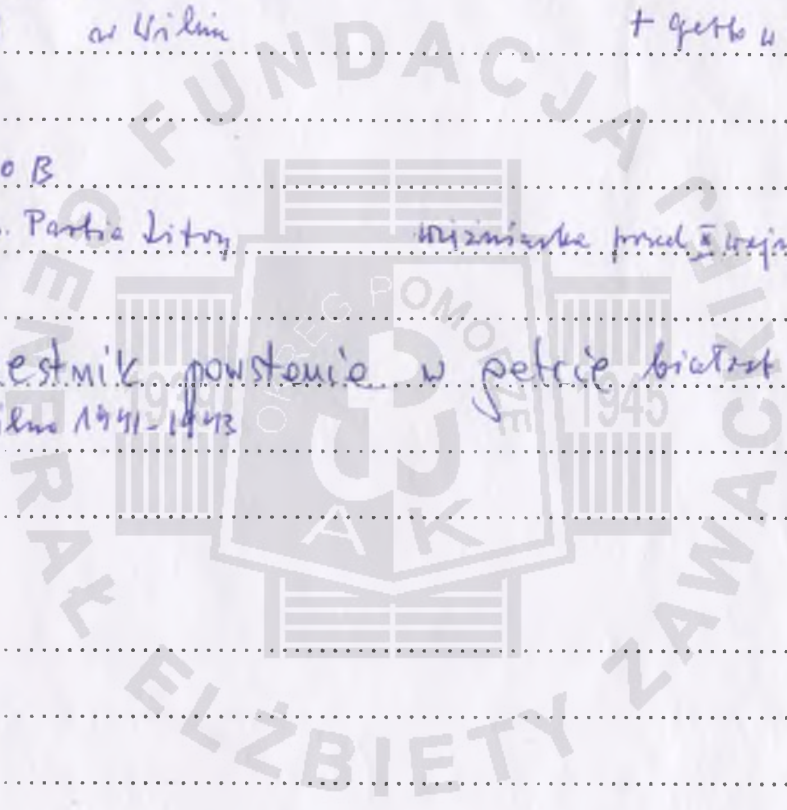 w Wilnie + getto w
o B
. Partia Litwy więźniarka przed II wojn
estnik powstanie w getcie białost
ilno 1941-1943
FUNDACJA
GENERAŁ ELŻBIETY ZAWACKIEJ
OKRĘG POMORZE
1939 1945
AK